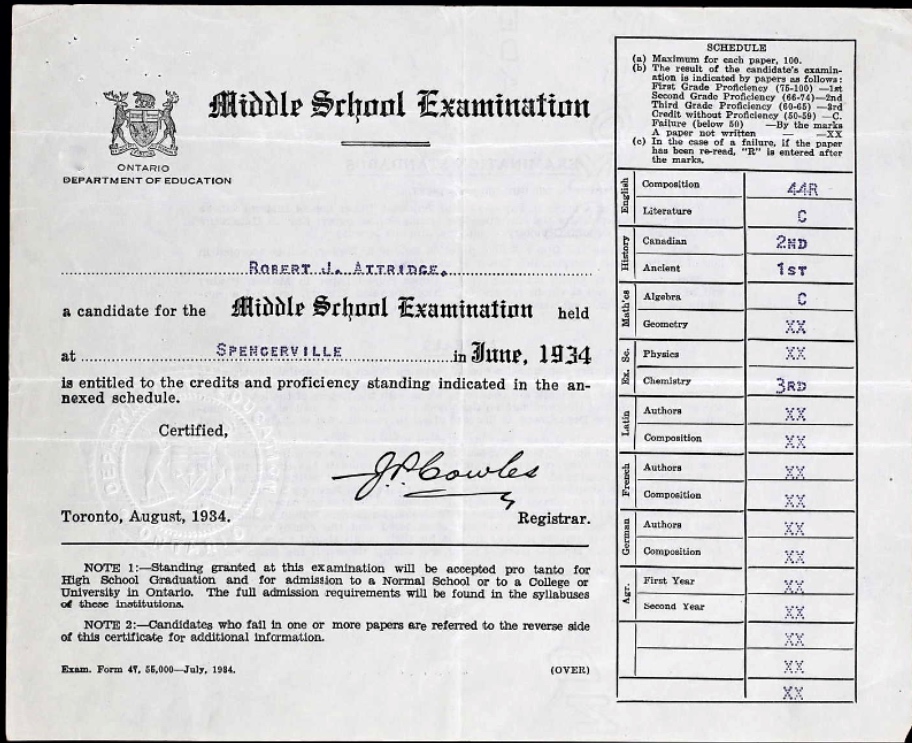 Middle School Examination
ONTARIO
DEPARTMENT OF EDUCATION
ROBERT J. ATTRIDGE.
a candidate for the Middle School Examination held
at SPENCERVILLE in June, 1934
is entitled to the credits and proficiency standing indicated in the an-
nexed schedule.
Certified,
J.P. Cowles
Toronto, August, 1934. Registrar.
NOTE 1:—Standing granted at this examination will be accepted pro tanto for
High School Graduation and for admission to a Normal School or to a College or
University in Ontario. The full admission requirements will be found in the syllabuses
of these institutions.
NOTE 2:—Candidates who fail in one or more papers are referred to the reverse side
of this certificate for additional information.
Exam. Form 47, 55,000—July, 1934. (OVER)
SCHEDULE
(a) Maximum for each paper, 100.
(b) The result of the candidate's examin-
ation is indicated by papers as follows:
First Grade Proficiency (75-100) —1st
Second Grade Proficiency (66-74)—2nd
Third Grade Proficiency (60-65) —3rd
Credit without Proficiency (50-59) —C.
Failure (below 50) —By the marks
A paper not written — —XX
(c) In the case of a failure, if the paper
has been re-read, "R" is entered after
the marks.
English
Composition 44R
Literature C
History
Canadian 2ND
Ancient 1ST
Math'cs
Algebra C
Geometry XX
Ex. Sc.
Physics XX
Chemistry 3RD
Latin
Authors XX
Composition XX
French
Authors XX
Composition XX
German
Authors XX
Composition XX
Agr.
First Year XX
Second Year XX
XX
XX
XX